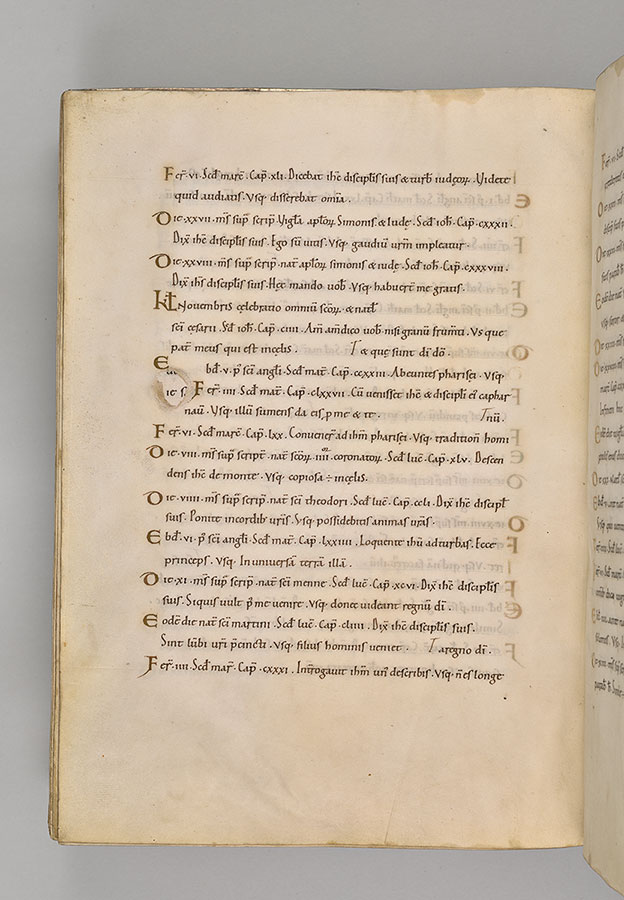 Fer̄ · vi · Scd̄ marc̄ · Cap̄ · xli · Dicebat ihc̄ discipl̄is suis & turb̄ iudęoꝝ · Videte
quid audiatis · Vsq; disserebat omīa ·
Die · xxvii · mīs sup̄ scrip̄ · Vigl̄a apl̄oꝝ Simonis & iudę · Scd̄ ioh̄ · Cap̄ · cxxxii ·
Dix̄ ihc̄ discipl̄is suis · Ego sū uitis · Vsq; gaudiū ur̄m impleatur ·
Die · xxviii · mīs sup̄ scrip̄ · nat̄ apl̄oꝝ simonis & iudę · Scd̄ ioh̄ · Cap̄ · cxxxviii ·
Dix̄ ihs̄ discipl̄is suis · Hęc mando uob̄ · Vsq; habuer̄ me gratis ·
Kl̄ Nouembris celebratio omniū sc̄oꝝ · & natl̄
sc̄i cesarii · Scd̄ ioh̄ · Cap̄ · ciiii · Am̄ am̄ dico uob̄ nisi granū frum̄ti · Vs que
pat̄ meus qui est incelis · T & quę sunt dī dō ·
E bd̄ · v · p̄ sc̄i angl̄i · Scd̄ mat̄ · Cap̄ · ccxxiii · Abeuntes pharisei · Vsq;
Fer̄ · iiii · Scd̄ mat̄ · Cap̄ · clxxvii · Cū uenisset ihc̄ & discipl̄i ei caphar
naū · Vsq; illū sumens da eis p̄ me & te · T nū ·
Fer̄ · vi · Scd̄ marc̄ · Cap̄ · lxx · Conuener̄ ad ihm̄ pharisei · Vsq; traditionē homi
Die · viii · mīs sup̄ script̄ · nat̄ sc̄oꝝ · iiii · coronatoꝝ · Scd̄ luc̄ · Cap̄ · xlv · Descen
dens ihc̄ de monte · Vsq; copiosa ÷ incelis ·
Die · viiii · mīs sup̄ scrip̄ · nat̄ sc̄i theodori · Scd̄ luc̄ · Cap̄ · ccli · Dix̄ ihc̄ discipl̄
suis · Ponite incordib̄ ur̄is · Vsq; possidebitis animas ur̄as ·
Ebd̄ · vi · p̄ sc̄i angl̄i · Scd̄ mat̄ · Cap̄ · lxxiiii · Loquente ihū ad turbas · Ecce
princeps · Vsq; In uniuersā terrā illā ·
Die · xi · mīs sup̄ scrip̄ · nat̄ sc̄i mennę · Scd̄ luc̄ · Cap̄ · xcvi · Dix̄ ihc̄ discipl̄is
suis · Siquis uult p̄ me uenire · Vsq; donec uideant regnū dī ·
Eodē die nat̄ sc̄i martini · Scd̄ luc̄ · Cap̄ · cliiii · Dix̄ ihc̄ discipl̄is suis ·
Sint lūbi ur̄i p̄cincti · Vsq; filius hominis ueniet · T a regno dī ·
Fer̄ · iiii · Scd̄ mar̄ · Cap̄ · cxxxi · Inrogauit ihm̄ un̄ describis · Vsq; n̄ es longe